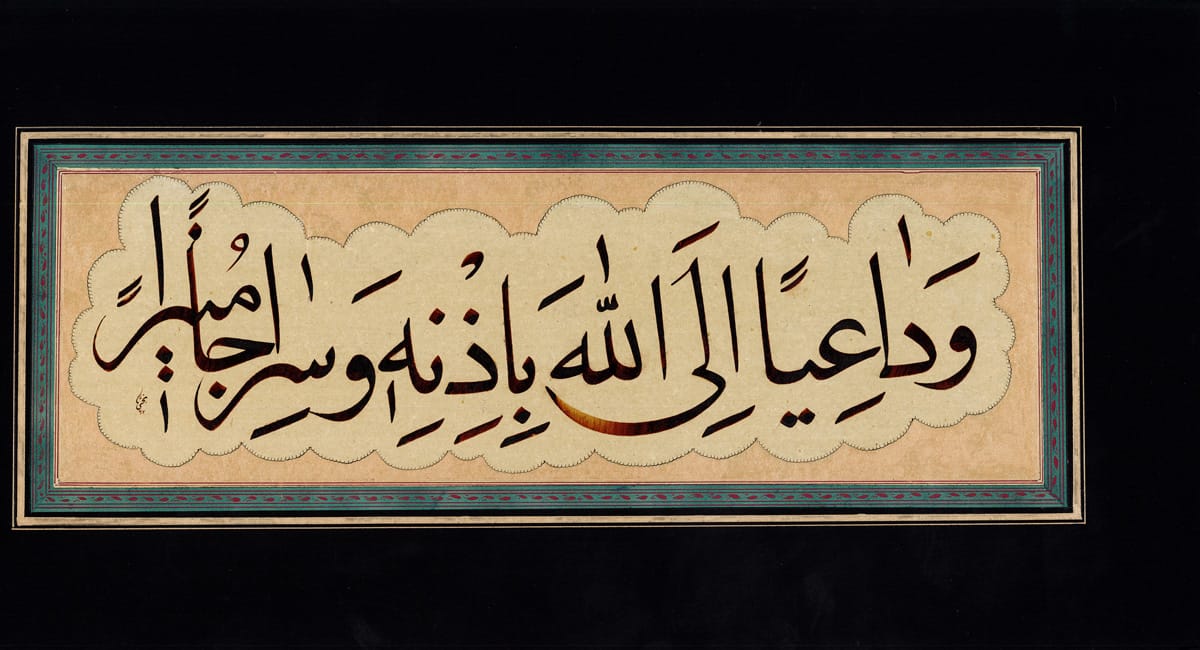 وَدَاعِيًا اِلَى اللّٰهِ بِاِذْنِهِ وَسِرَاجًا مُنِيرًا